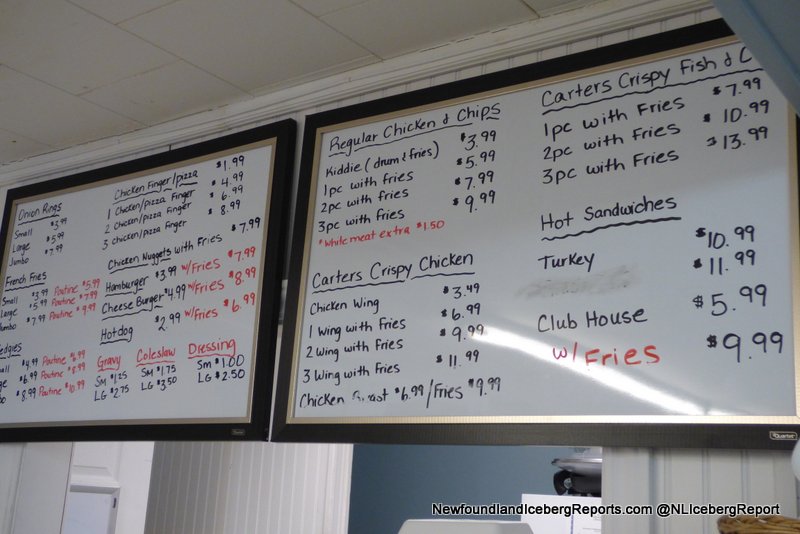 Onion Rings
Small $3.99
Large $5.99
Jumbo $7.99
French Fries
Small $3.99 Poutine $5.99
Large $5.99 Poutine $7.99
Jumbo $7.99 Poutine $9.99
edgies
all $4.99 Poutine $6.99
ge $6.99 Poutine $8.99
bo $8.99 Poutine $10.99
Chicken Finger/pizza $1.99
1 Chicken/pizza Finger $4.99
2 Chicken/pizza Finger $6.99
3 Chicken/pizza Finger $8.99
Chicken Nuggets with Fries $7.99
Hamburger $3.99 w/Fries $7.99
Cheese Burger $4.99 w/Fries $8.99
Hotdog $2.99 w/Fries $6.99
Gravy
Sm $1.25
LG $2.75
Coleslaw
Sm $1.75
LG $3.50
Dressing
Sm $1.00
LG $2.50
Regular Chicken & Chips
Kiddie (drum & fries) $3.99
1pc with fries $5.99
2pc with fries $7.99
3pc with fries $9.99
*White meat extra $1.50
Carters Crispy Chicken
Chicken Wing $3.49
1 Wing with Fries $6.99
2 Wing with Fries $9.99
3 Wing with Fries $11.99
Chicken Breast $6.99/Fries $9.99
Carters Crispy Fish & C
1pc with Fries $7.99
2pc with Fries $10.99
3pc with Fries $13.99
Hot Sandwiches
Turkey $10.99
$11.99
Club House $5.99
w/Fries $9.99
Quartet
Quartet
NewfoundlandIcebergReports.com @NLIcebergReport